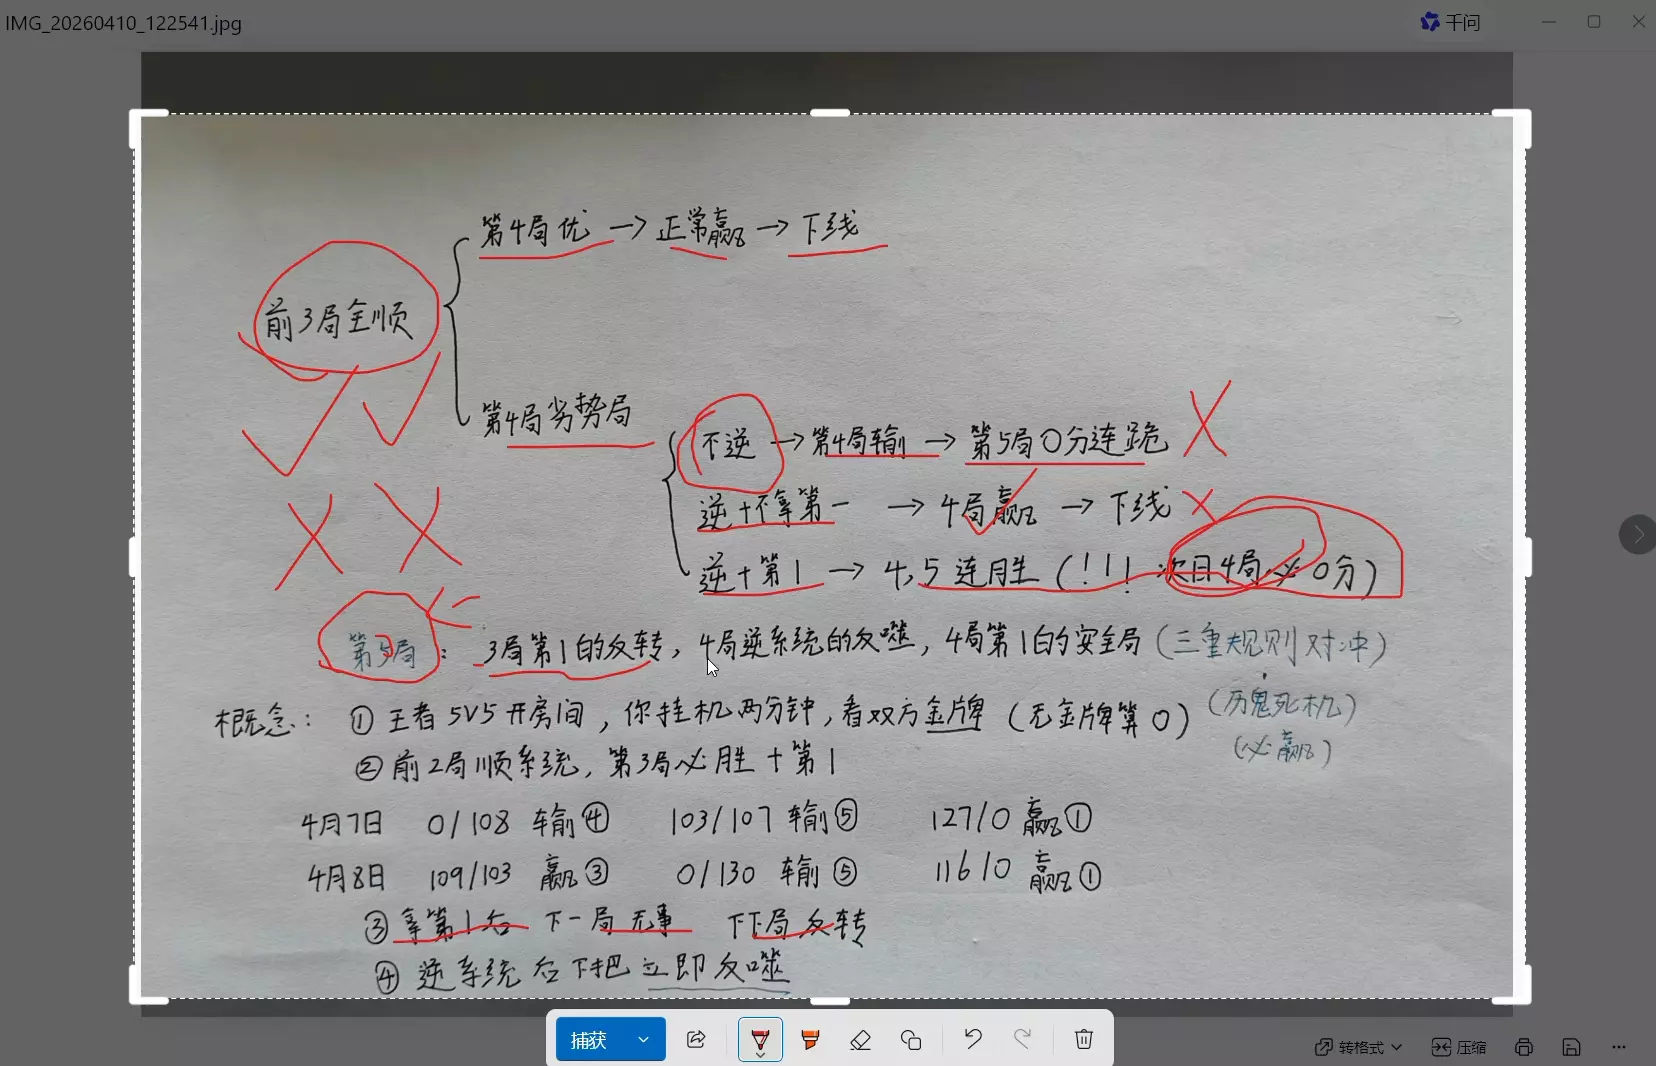 IMG_20260410_122541.jpg
千问
第4局优 → 正常赢 → 下线
前3局全顺
第4局劣势局
不逆 → 第4局输 → 第5局0分连跪
逆+不拿第一 → 4局赢 → 下线
逆+第1 → 4,5连胜(!!! 次日4局必0分)
第5局: 3局第1的反转, 4局逆系统的反噬, 4局第1的安全局(三重规则对冲)
概念: ① 王者5V5开房间, 你挂机两分钟, 看双方金牌 (无金牌算0)
(历鬼死机)
(必赢)
② 前2局顺系统, 第3局必胜+第1
4月7日 0/108 输④ 103/107 输⑤ 127/0 赢①
4月8日 109/103 赢③ 0/130 输⑤ 116/0 赢①
③ 拿第1后 下一局无事 下下局反转
④ 逆系统后下把立即反噬
捕获
转格式
压缩